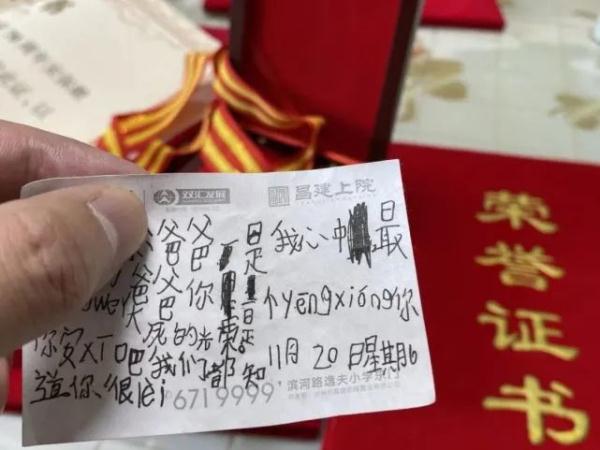 双汇发展 昌建上院
爸爸是我心中最
wei大
爸爸你是个yēngxióng你
死的光荣
你安xī吧我们都知 11月20日星期6
道你很lèi
6719999
滨河路逸夫小学东
荣誉证书